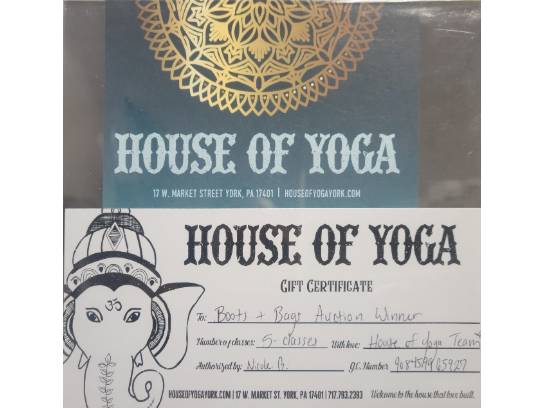 HOUSE OF YOGA
17 W. MARKET STREET YORK, PA 17401 | HOUSEOFYOGAYORK.COM
HOUSE OF YOGA
GIFT CERTIFICATE
To: Boots + Bags Auction Winner
Number of classes: 5-classes With love: House of Yoga Team
Authorized by: Nicole G. G.C. Number
HOUSEOFYOGAYORK.COM | 17 W. MARKET ST. YORK, PA 17401 | 717.793.2393 Welcome to the house that love built.
ॐ